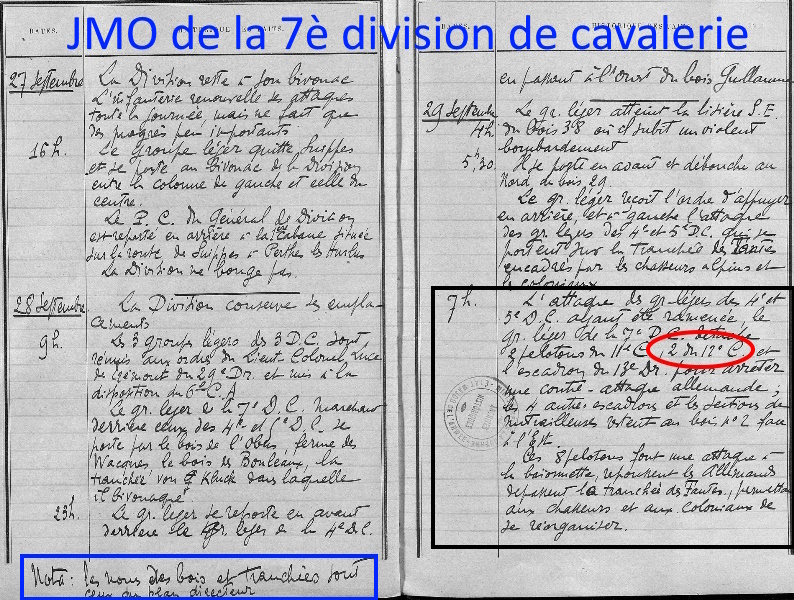 JMO de la 7è division de cavalerie
DATES. HISTORIQUE DES FAITS.
27 Septembre La Division reste à son bivouac
L'infanterie renouvelle ses attaques
toute la journée, mais ne fait que
des progrès peu importants
16h. Le Groupe léger quitte Suippes
et se porte au bivouac de la Division
entre la colonne de gauche et celle du
centre.
Le P.C. du Général de Division
est reporté en arrière à la cabane située
sur la route de Suippes à Perthes les Hurlus
La Division ne bouge pas.
28 Septembre La Division conserve ses empla-
cements
9h. Les 3 groupes légers des 3 D.C. sont
remis aux ordres du Lieut. Colonel
du 29e Dr. et mis à la
disposition du 6e C.A
Le gr. léger de la 7e D.C. marchant
derrière ceux des 4e et 5e D.C. se
porte par le bois de l'Obus, ferme des
Wacques, le bois des Bouleaux, la
tranchée von Kluck dans laquelle
il bivouaque
23h. Le gr. léger se reporte en avant
derrière le gr léger de la 4e D.C.
Nota: les noms des bois et tranchées sont
ceux du plan directeur
HISTORIQUE DES FAITS.
en passant à l'Ouest du bois Guillaume
29 Septembre
4h. Le gr. léger atteint la lisière S.E.
du bois 38 où il subit un violent
bombardement
5h,30. Il se porte en avant et débouche au
Nord du bois 29
Le gr. léger reçoit l'ordre d'appuyer
en arrière, et à gauche l'attaque
des gr légers des 4e et 5e D.C. qui se
portent sur la tranchée des Tantes
encadrés par les chasseurs alpins et
les coloniaux
7h. L'attaque des gr. légers des 4e et
5e D.C. ayant été ramenée, le
gr. léger de la 7e D.C. détache
8 pelotons du 11e C, 2 du 12e C. et
l'escadron du 13e Dr. pour arrêter
une contre-attaque allemande;
les 4 autres escadrons et les sections de
mitrailleuses restent au bois no 2 face
à l'Est.
Ces 8 pelotons font une attaque à
la baïonnette, repoussent les Allemands
dépassent la tranchée des Tantes, permettant
aux chasseurs et aux coloniaux de
se réorganiser.